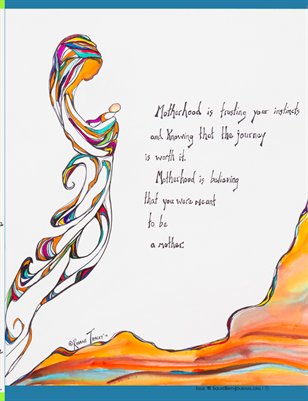 Motherhood is trusting your instincts
and Knowing that the journey
is worth it.
Motherhood is believing
that you were meant
to be
a mother.